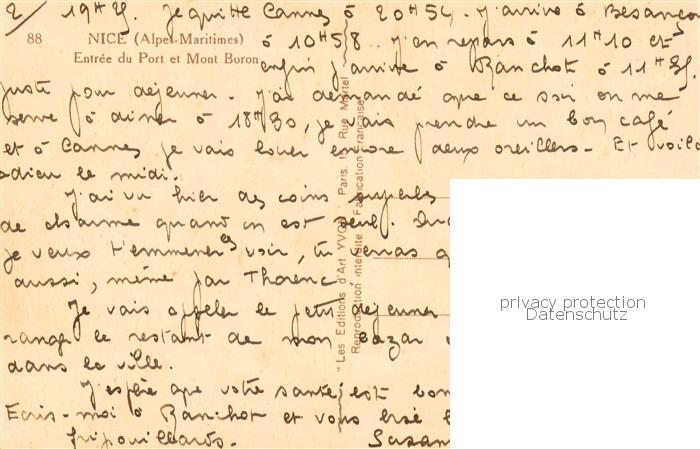 2/ 19H25. Je quitte Cannes à 20H54. J'arrive à Besançon
88 NICE (Alpes-Maritimes)
à 10H58. J'en repars à 11H10 et
Entrée du Port et Mont Boron
enfin j'arrive à Ranchot à 11H35
juste pour déjeuner. J'ai demandé que ce soir on me
serve à diner à 18H30, je vais prendre un bon café
et à Cannes je vais louer encore deux oreillers. Et voilà
adieu le midi.
J'ai vu hier des coins superbes
de charme quand on est seul.
je veux t'emmener voir, tu verras
aussi, même par Thorenc
Je vais appeler le petit déjeuner
range le restant de mon bazar
dans la ville.
J'espère que votre santé est bon
Ecris-moi à Ranchot et vous
fripouillards. Suzan
"Les Editions d'Art YVON" Paris 1 Rue Martel
Reproduction interdite Fabrication Française
privacy protection
Datenschutz